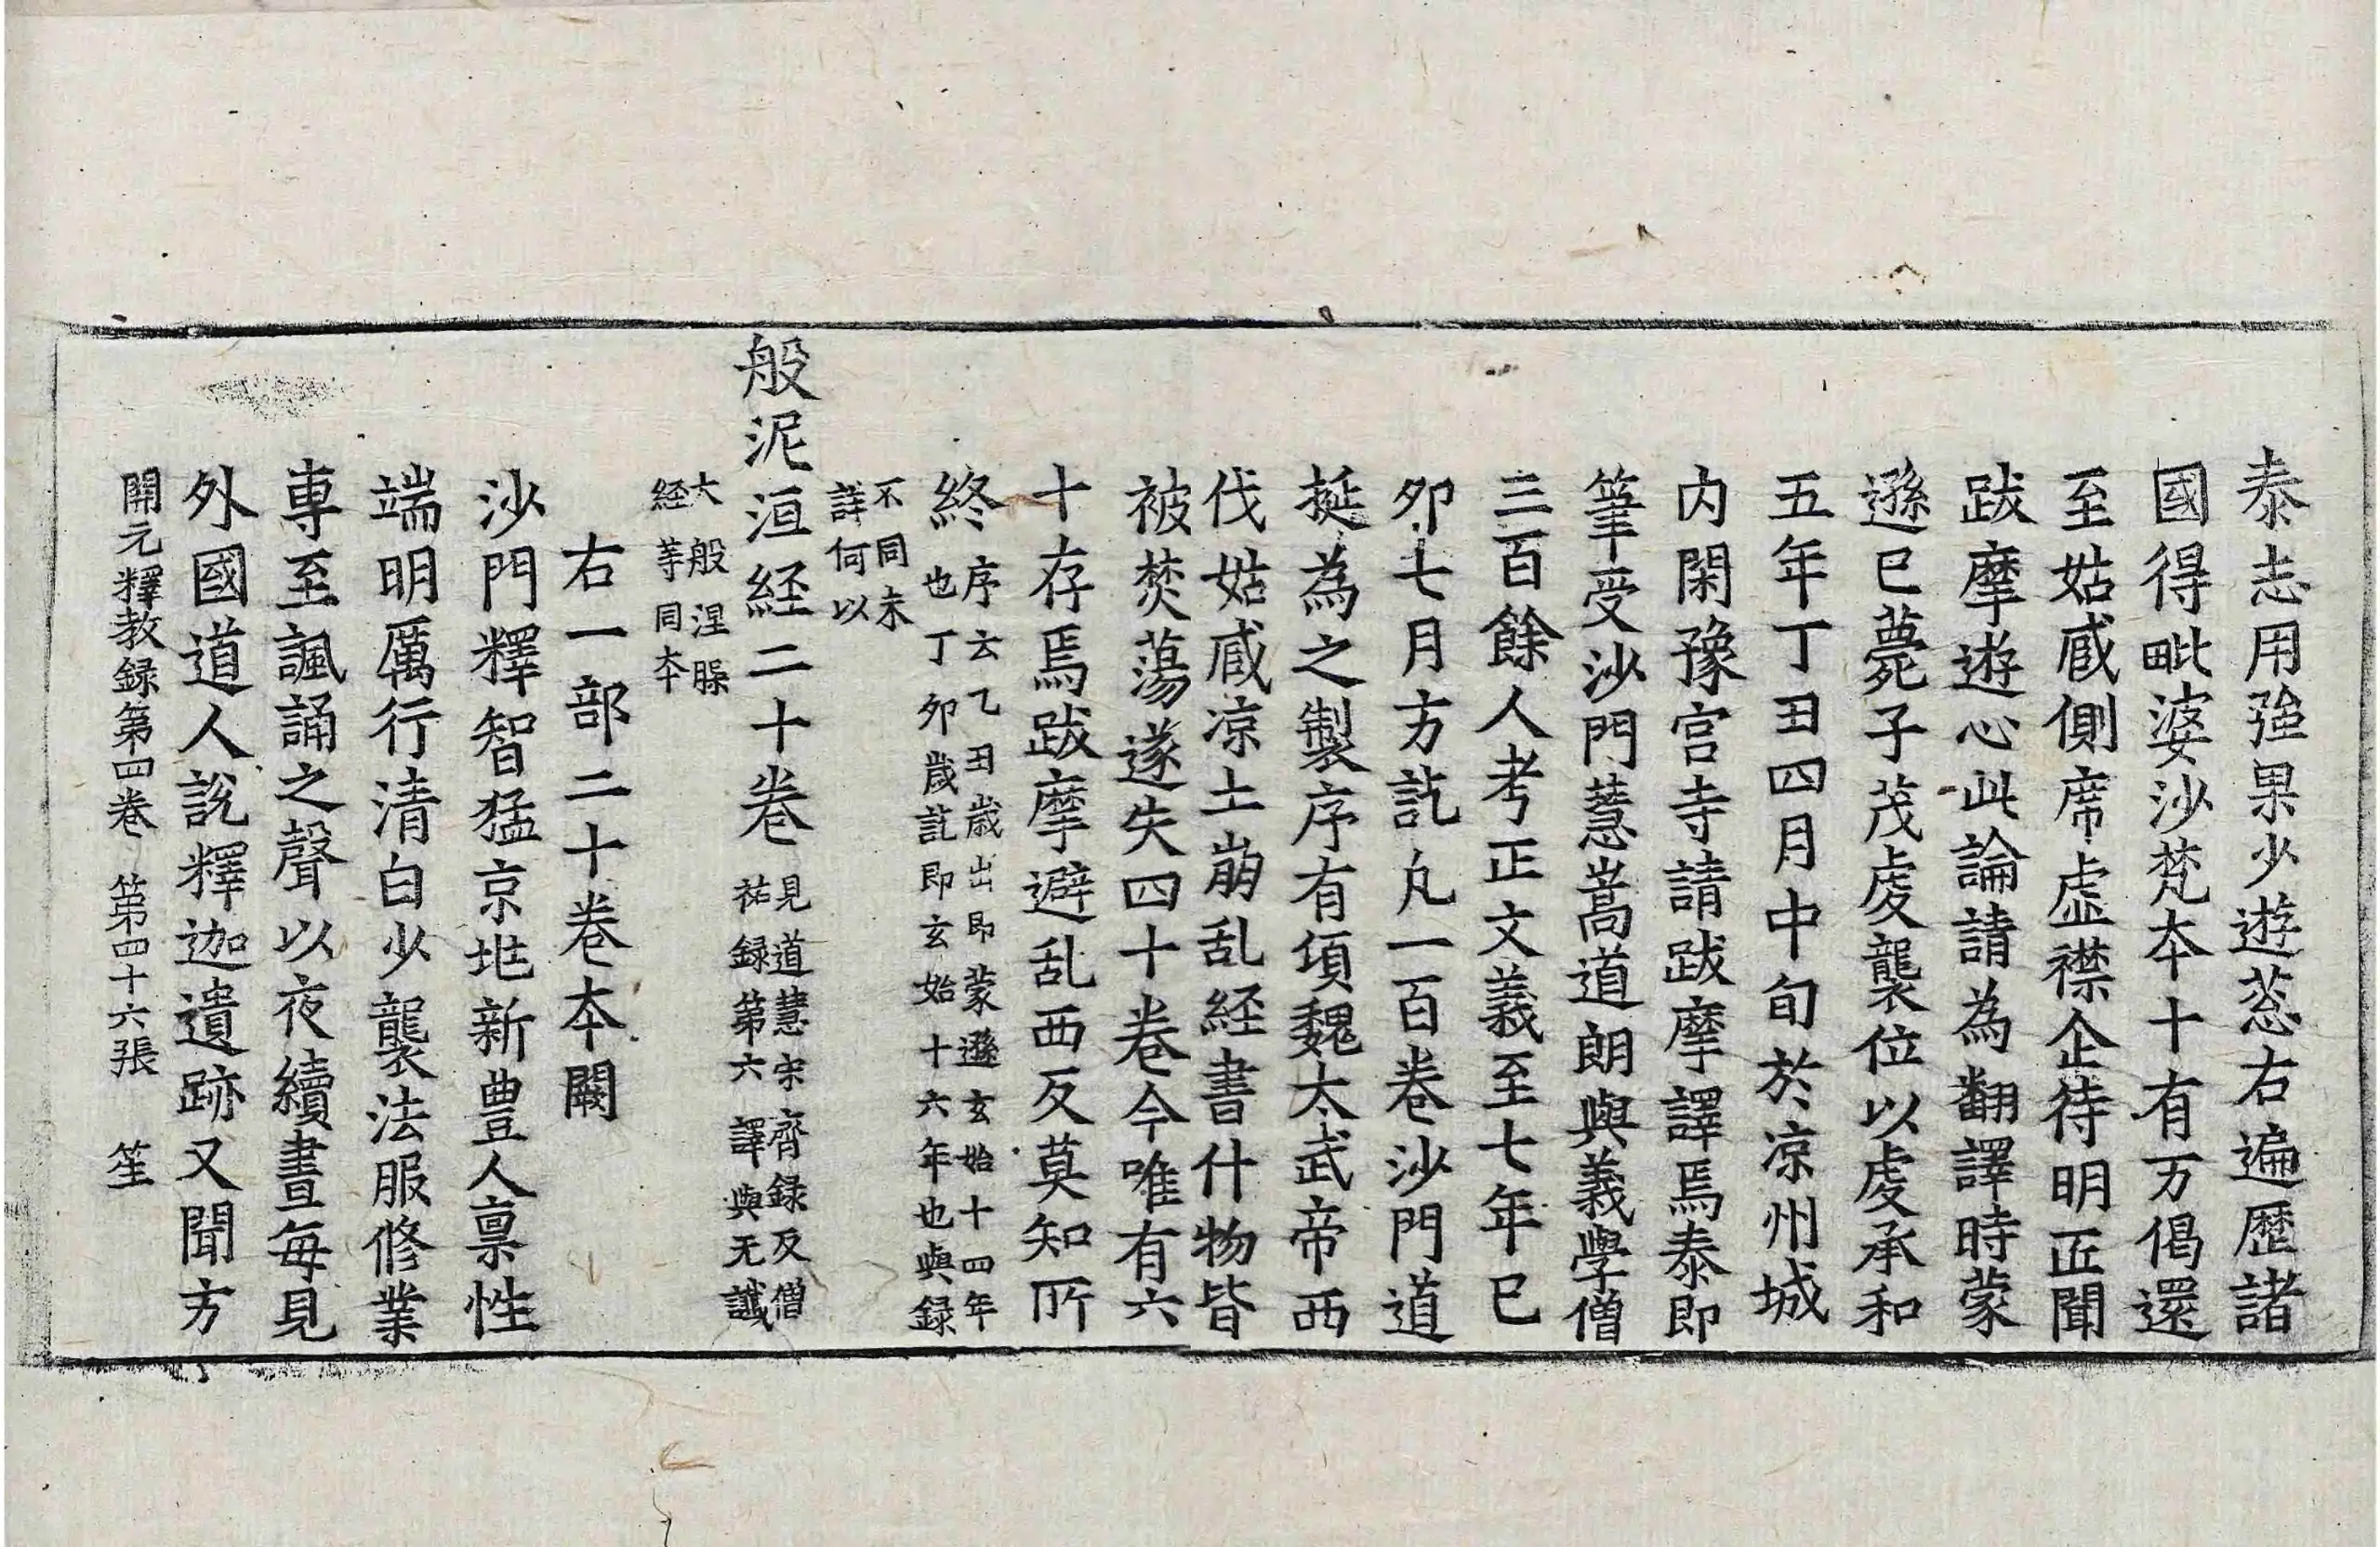 泰志用強果少遊葱右遍歷諸
國得毗婆沙梵本十有万偈還
至姑臧側席虛襟企待明匠聞
跋摩遊心此論請為翻譯時蒙
遜已薨子茂虔襲位以虔承和
五年丁丑四月中旬於凉州城
内閑豫宫寺請跋摩譯焉泰即
筆受沙門慧嵩道朗與義學僧
三百餘人考正文義至七年已
夘七月方訖凡一百卷沙門道
挻為之製序有頃魏太武帝西
伐姑臧凉土崩乱経書什物皆
被焚蕩遂失四十卷今唯有六
十存焉跋摩避乱西反莫知所
終
序云乙丑歲出即蒙遜玄始十四年
也丁夘歲訖即玄始十六年也與録
不同未
詳何以
般泥洹経二十卷
見道慧宋齊録及僧
祐録第六譯與无讖
大般涅槃
経等同本
右一部二十卷本闕
沙門釋智猛京地新豊人禀性
端明厲行清白少襲法服修業
專至諷誦之聲以夜續晝每見
外國道人說釋迦遺跡又聞方
開元釋教録第四卷　第四十六張　笙